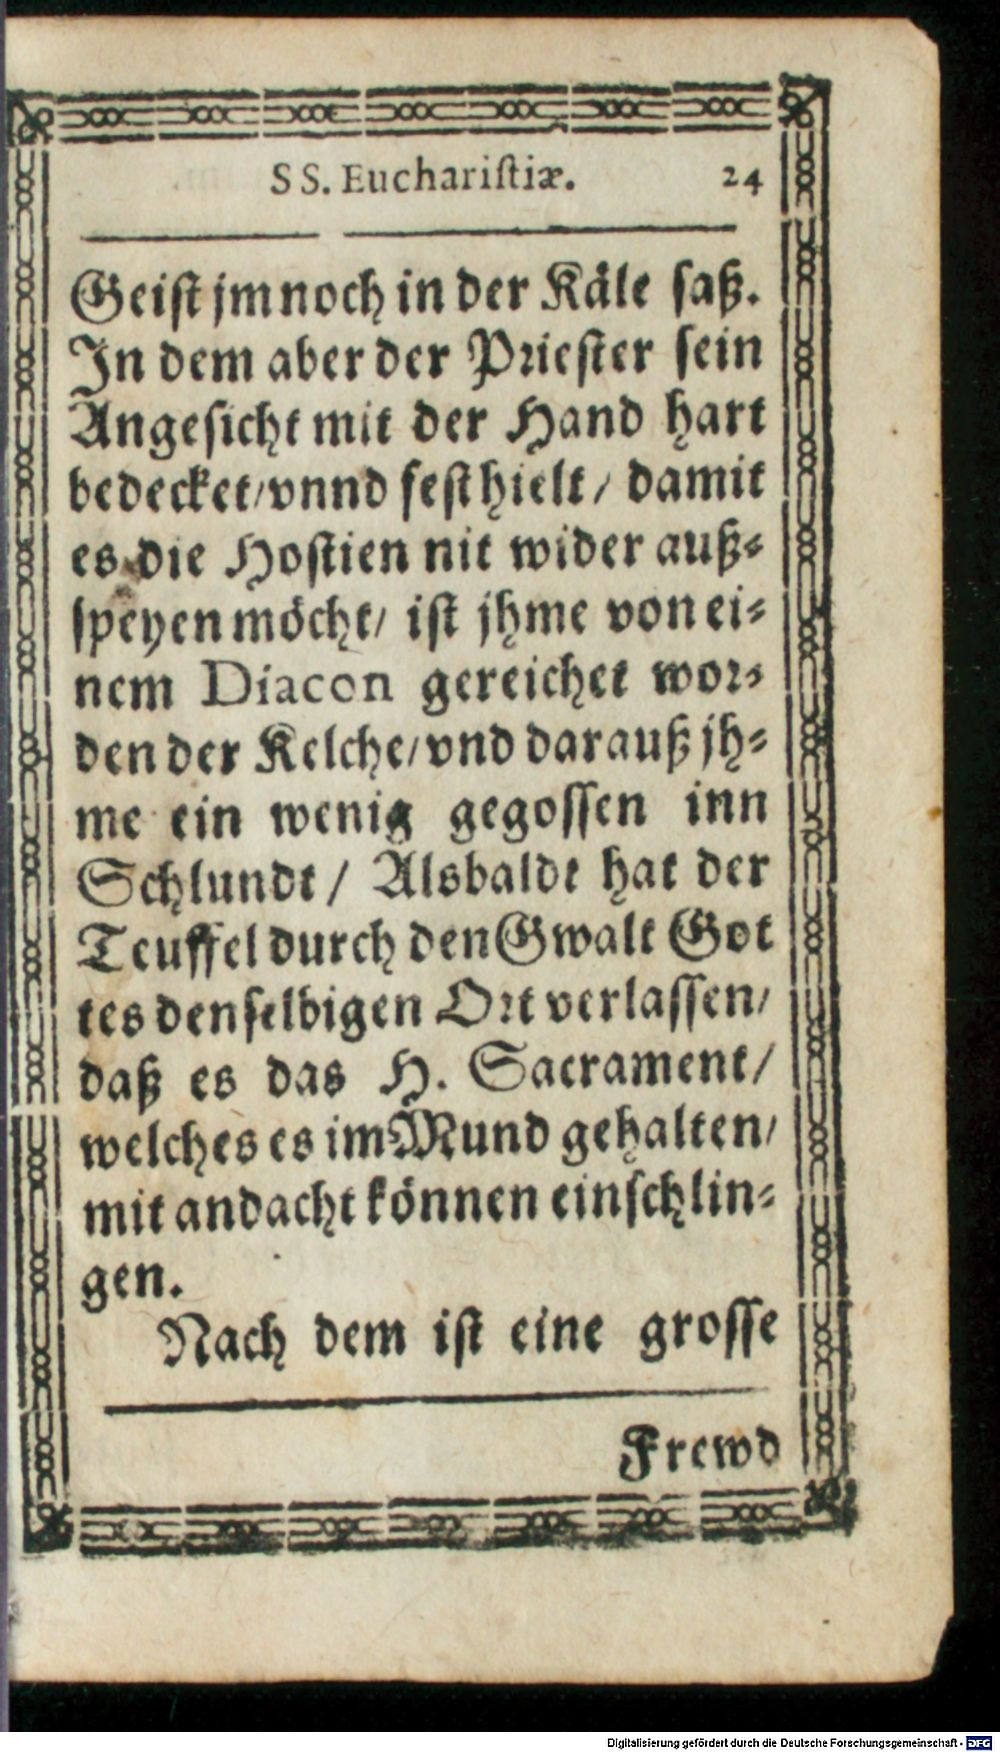 SS. Euchariſtiæ. 24
Geiſt jm noch in der Käle ſaß.
In dem aber der Prieſter ſein
Angeſicht mit der Hand hart
bedecket/ vnnd feſt hielt/ damit
es die Hoſtien nit wider auß⸗
ſpeyen möcht/ iſt jhme von ei⸗
nem Diacon gereichet wor⸗
den der Kelche/ vnd darauß jh⸗
me ein wenig gegoſſen inn
Schlundt/ Alsbaldt hat der
Teuffel durch den Gwalt Got
tes denſelbigen Ort verlaſſen/
daß es das H. Sacrament/
welches es im Mund gehalten/
mit andacht können einſchlin⸗
gen.
Nach dem iſt eine groſſe
Frewd
Digitalisierung gefördert durch die Deutsche Forschungsgemeinschaft - DFG